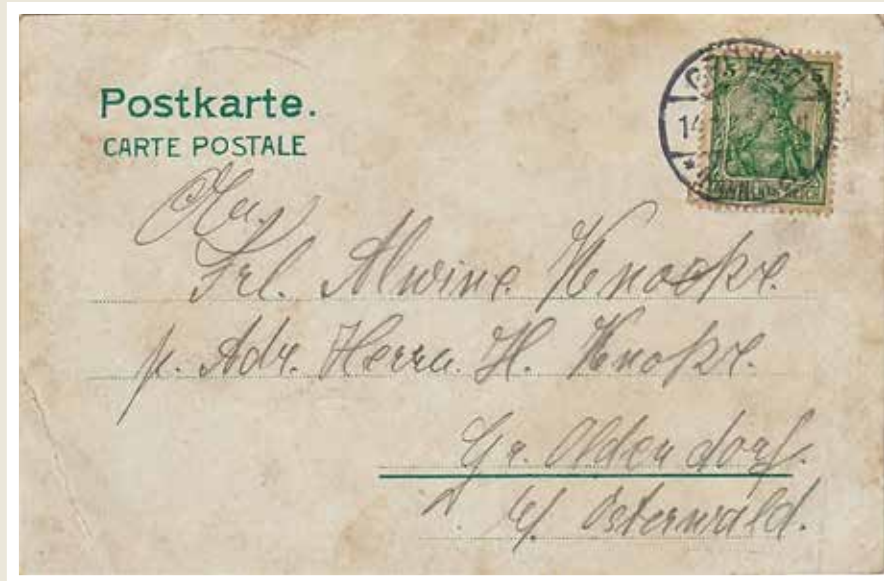 Postkarte.
CARTE POSTALE
An
Frl. Alwine Knocke.
p. Adr. Herrn H. Knoke.
Gr. Oldendorf.
b/ Osterwald.
5
14